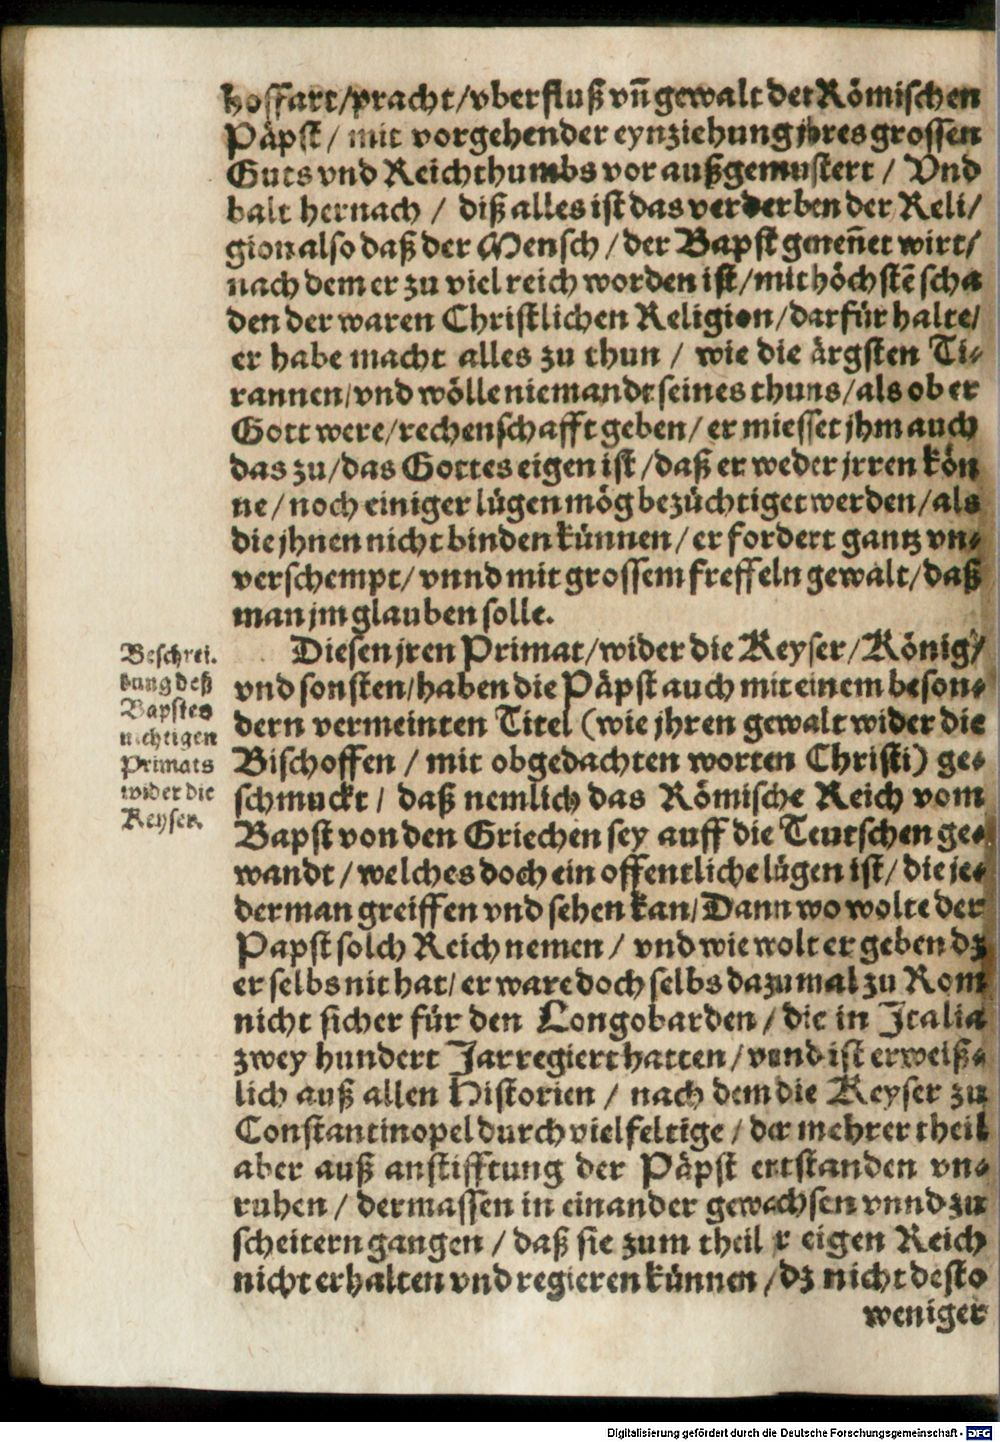 hoffart/pracht/vberfluß vñ gewalt der Römischen
Päpst/ mit vorgehender eynziehung jhres grossen
Guts vnd Reichthumbs vor außgemustert / Vnd
balt hernach / diß alles ist das verderben der Reli/
gion also daß der Mensch / der Bapst geneñet wirt/
nach dem er zu viel reich worden ist/mit höchstē scha
den der waren Christlichen Religion/darfür halte/
er habe macht alles zu thun / wie die ärgsten Ti-
rannen/vnd wölle niemandt seines thuns/als ob er
Gott were/rechenschafft geben/ er miesset jhm auch
das zu/das Gottes eigen ist /daß er weder jrren kön
ne/noch einiger lügen mög bezüchtiget werden/als
die jhnen nicht binden künnen/er fordert gantz vn-
verschempt/vnnd mit grossem freffeln gewalt/daß
man jm glauben solle.
Beschrei.
bung deß
Bapstes
nichtigen
Primats
wider die
Keyser.
Diesen jren Primat/wider die Keyser/König/
vnd sonsten/haben die Päpst auch mit einem beson-
dern vermeinten Titel (wie jhren gewalt wider die
Bischoffen / mit obgedachten worten Christi) ge-
schmuckt / daß nemlich das Römische Reich vom
Bapst von den Griechen sey auff die Teutschen ge-
wandt/welches doch ein offentliche lügen ist/die je-
derman greiffen vnd sehen kan/Dann wo wolte der
Papst solch Reich nemen / vnd wie wolt er geben dz
er selbs nit hat/ er ware doch selbs dazumal zu Rom
nicht sicher für den Longobarden / die in Italia
zwey hundert Jar regiert hatten / vnnd ist erweiß-
lich auß allen Historien / nach dem die Keyser zu
Constantinopel durch vielfeltige / der mehrer theil
aber auß anstifftung der Päpst entstanden vn-
ruhen / dermassen in einander gewachsen vnnd zu
scheitern gangen / daß sie zum theil eigen Reich
nicht erhalten vnd regieren künnen / dz nicht desto
weniger
Digitalisierung gefördert durch die Deutsche Forschungsgemeinschaft - DFG